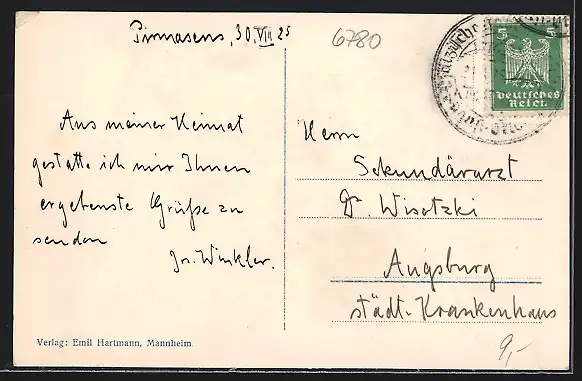 Pirmasens, 30.VIII 25
6780
5 5
Deutsches
Reich
Aus meiner Heimat
gestatte ich mir Ihnen
ergebenste Grüße zu
senden
Jos. Winkler.
Herrn
Sekundärarzt
Dr. Wisotzki
Augsburg
städt. Krankenhaus
Verlag: Emil Hartmann, Mannheim
9,-